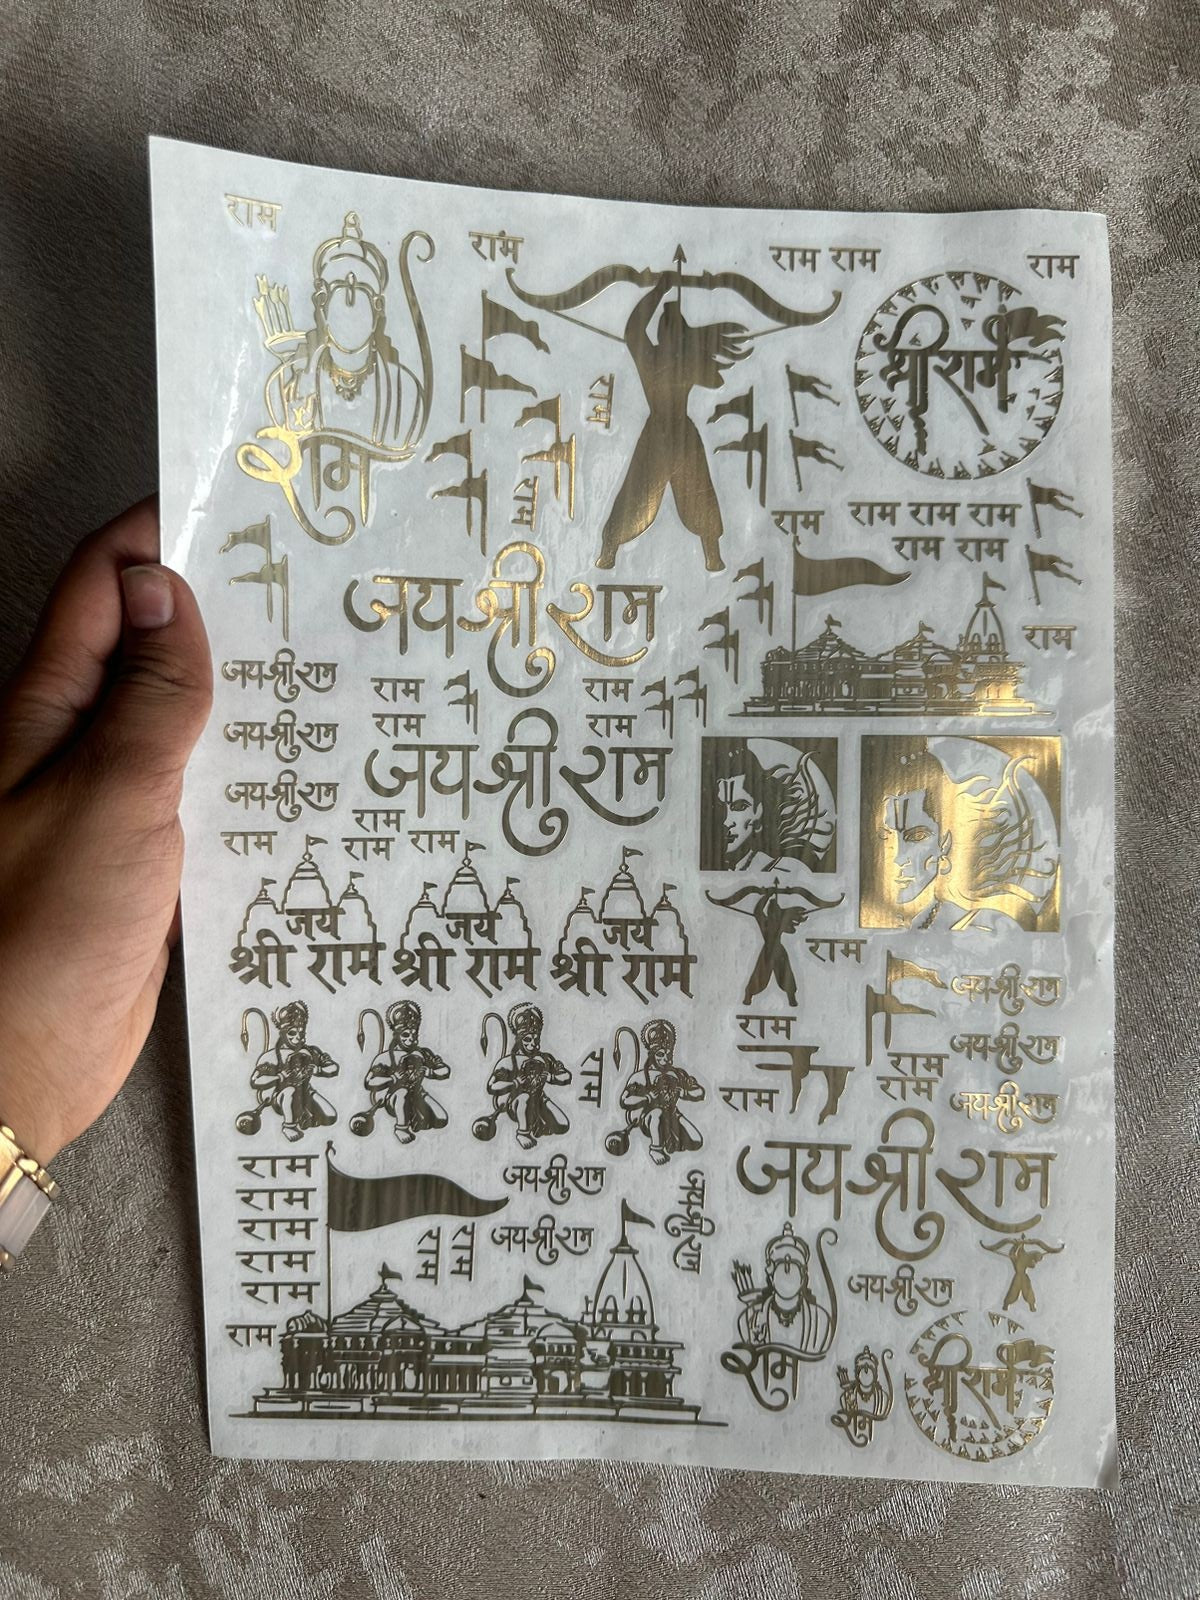 राम
राम
राम राम
राम
श्री राम
राम
राम
राम
राम
राम राम राम राम
राम राम
जय श्री राम
राम
जय श्री राम
राम
राम
जय श्री राम
राम
राम
जय श्री राम
जय श्री राम
राम
राम
राम
राम
जय
श्री राम
जय
श्री राम
जय
श्री राम
राम
जय श्री राम
राम
जय श्री राम
राम
राम
राम
राम
जय श्री राम
राम
राम
राम
राम
राम
राम
जय श्री राम
जय श्री राम
राम
राम
जय श्री राम
राम
जय श्री राम
जय श्री राम
राम
राम
श्री राम